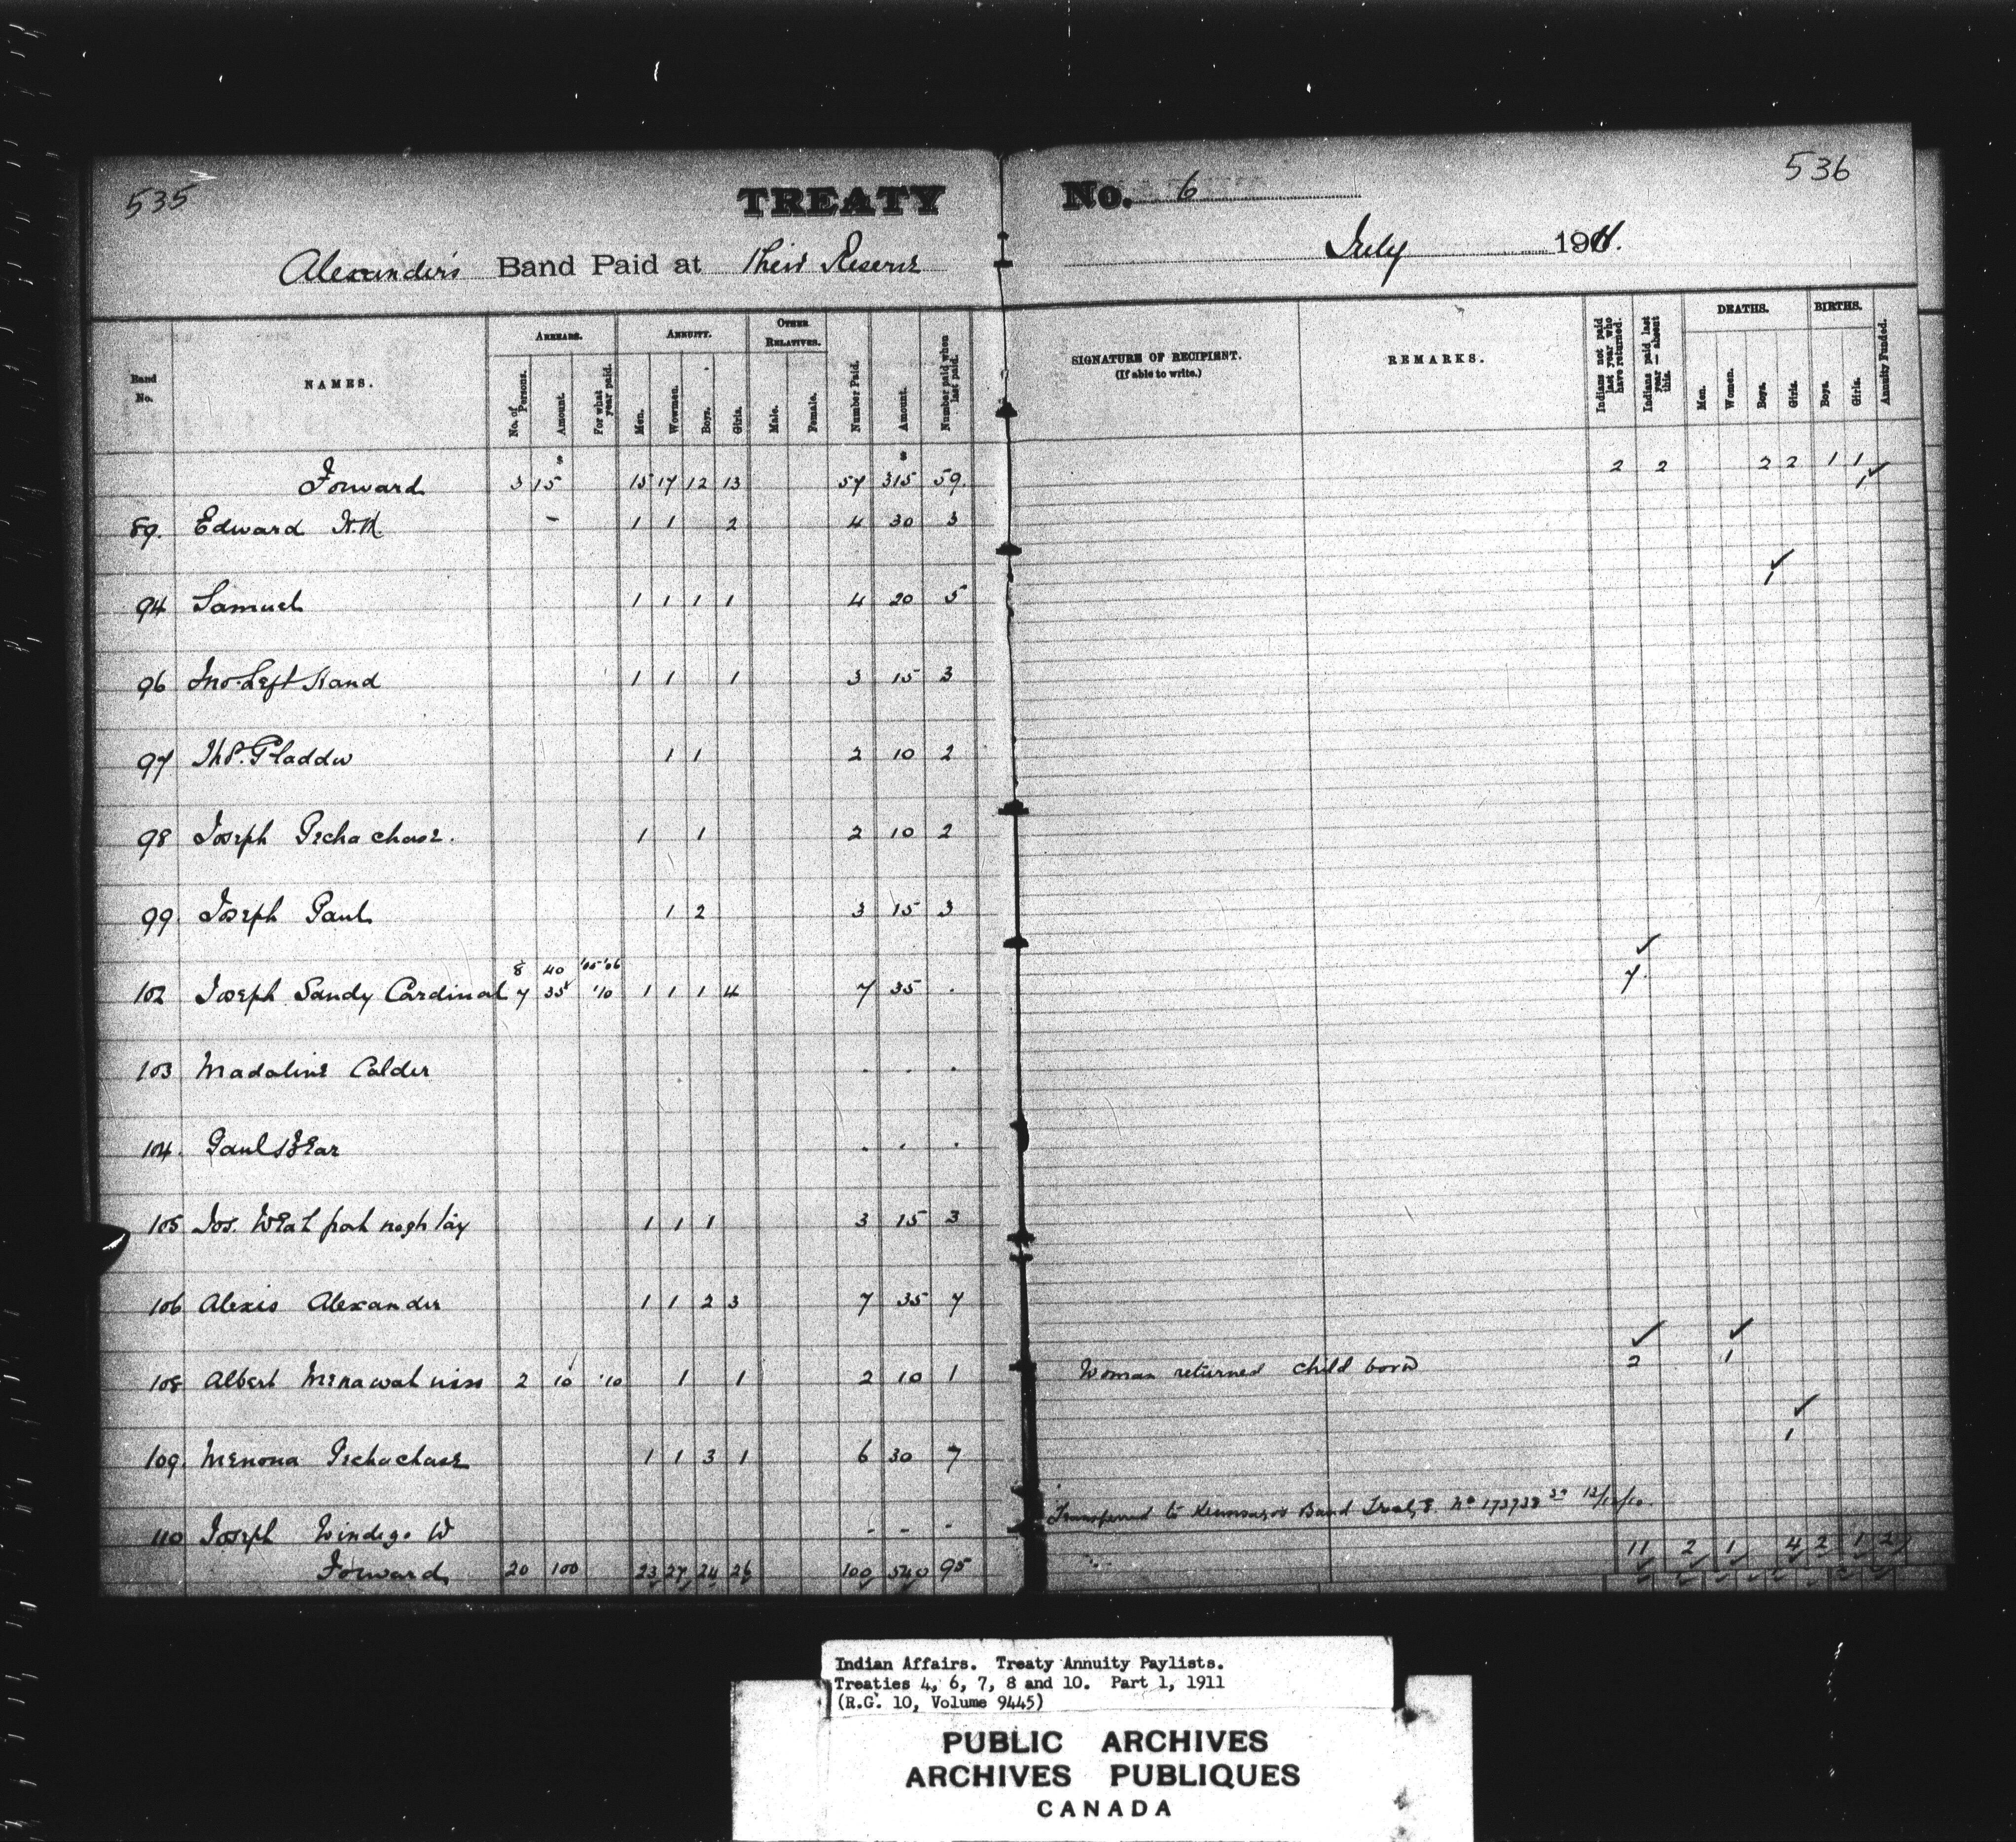 535
536
TREATY No. 6
Alexander's Band Paid at Their Reserve July 1911.
Band No.
NAMES.
ARREARS.
No. of Persons.
Amount.
For what year paid.
ANNUITY.
Men.
Wowmen.
Boys.
Girls.
OTHER RELATIVES.
Male.
Female.
Number Paid.
Amount.
Number paid when last paid.
SIGNATURE OF RECIPIENT.
(If able to write.)
REMARKS.
Indians not paid last year who have returned.
Indians paid last year — absent this.
DEATHS.
Men.
Women.
Boys.
Girls.
BIRTHS.
Boys.
Girls.
Annuity Funded.
Forward 3 15 15 17 12 13 57 315 59. 2 2 2 2 1 1
89. Edward N.K. - 1 1 2 4 30 3 1
94 Samuel 1 1 1 1 4 20 5 1
96 Jno. Left Hand 1 1 1 3 15 3
97 Thos. Gladdu 1 1 2 10 2
98 Joseph Pechachase. 1 1 2 10 2
99 Joseph Paul 1 2 3 15 3
8 40 '05-'06
102 Joseph Sandy Cardinal 7 35 '10 1 1 1 4 7 35 . 7.
103 Madaline Calder . . .
104. Paul Bear . . .
105 Jos. 1 1 1 3 15 3
106 Alexis Alexander 1 1 2 3 7 35 7
108 Albert 2 10 '10 1 1 2 10 1 Woman returned child born 2 1
109. Menona Pechachase 1 1 3 1 6 30 7 1
110 Joseph Windigo W - - - Transferred to Band 12/12/10.
Forward 20 100 23 27 24 26 100 540 95 11 2 1 4 2 1 2
Indian Affairs. Treaty Annuity Paylists.
Treaties 4, 6, 7, 8 and 10. Part 1, 1911
(R.G. 10, Volume 9445)
PUBLIC ARCHIVES
ARCHIVES PUBLIQUES
CANADA